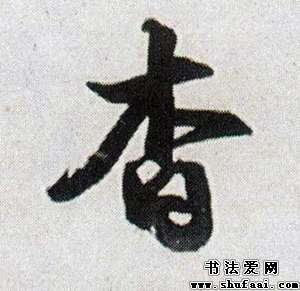 杳
书法爱网
www.shufaai.com